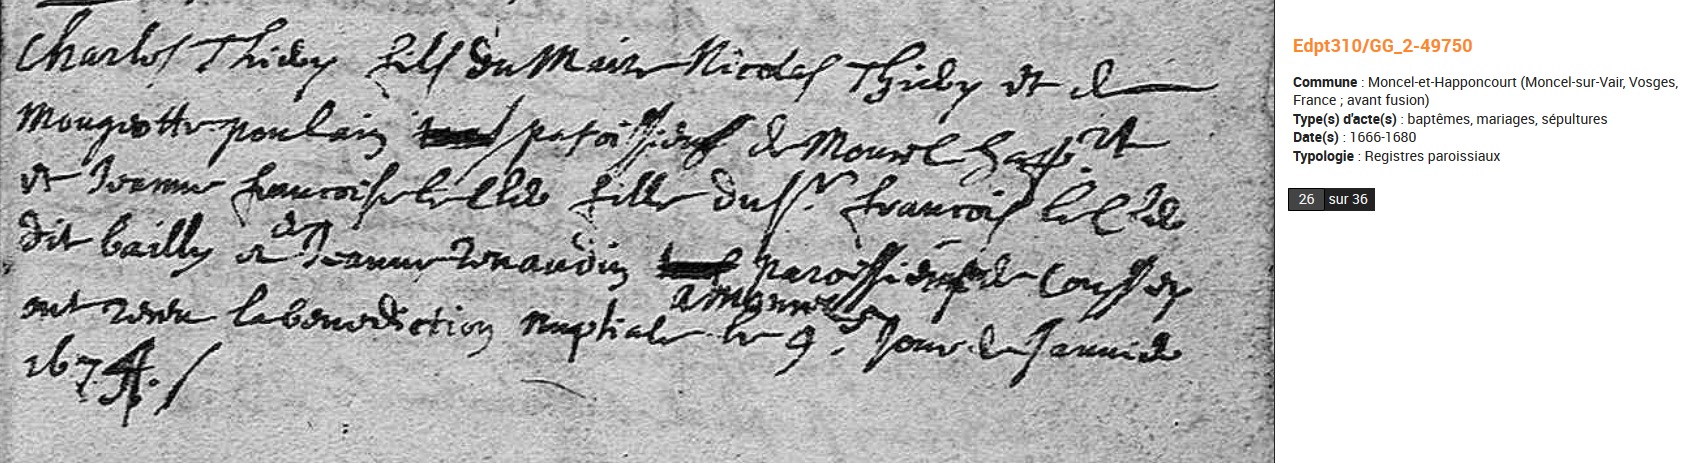 Charles Thiery fils du Maire Nicolas Thiery et de
Mougeotte poulain paroissiens de Moncel happ.
et Jeanne francoise fille du Sr. francois
dit bailly et de Jeanne renaudin paroissiens de Coussey
ont receu la benediction nuptiale a moncel le 9e Jour de Janvier
167
Edpt310/GG_2-49750
Commune : Moncel-et-Happoncourt (Moncel-sur-Vair, Vosges,
France ; avant fusion)
Type(s) d'acte(s) : baptêmes, mariages, sépultures
Date(s) : 1666-1680
Typologie : Registres paroissiaux
26 sur 36